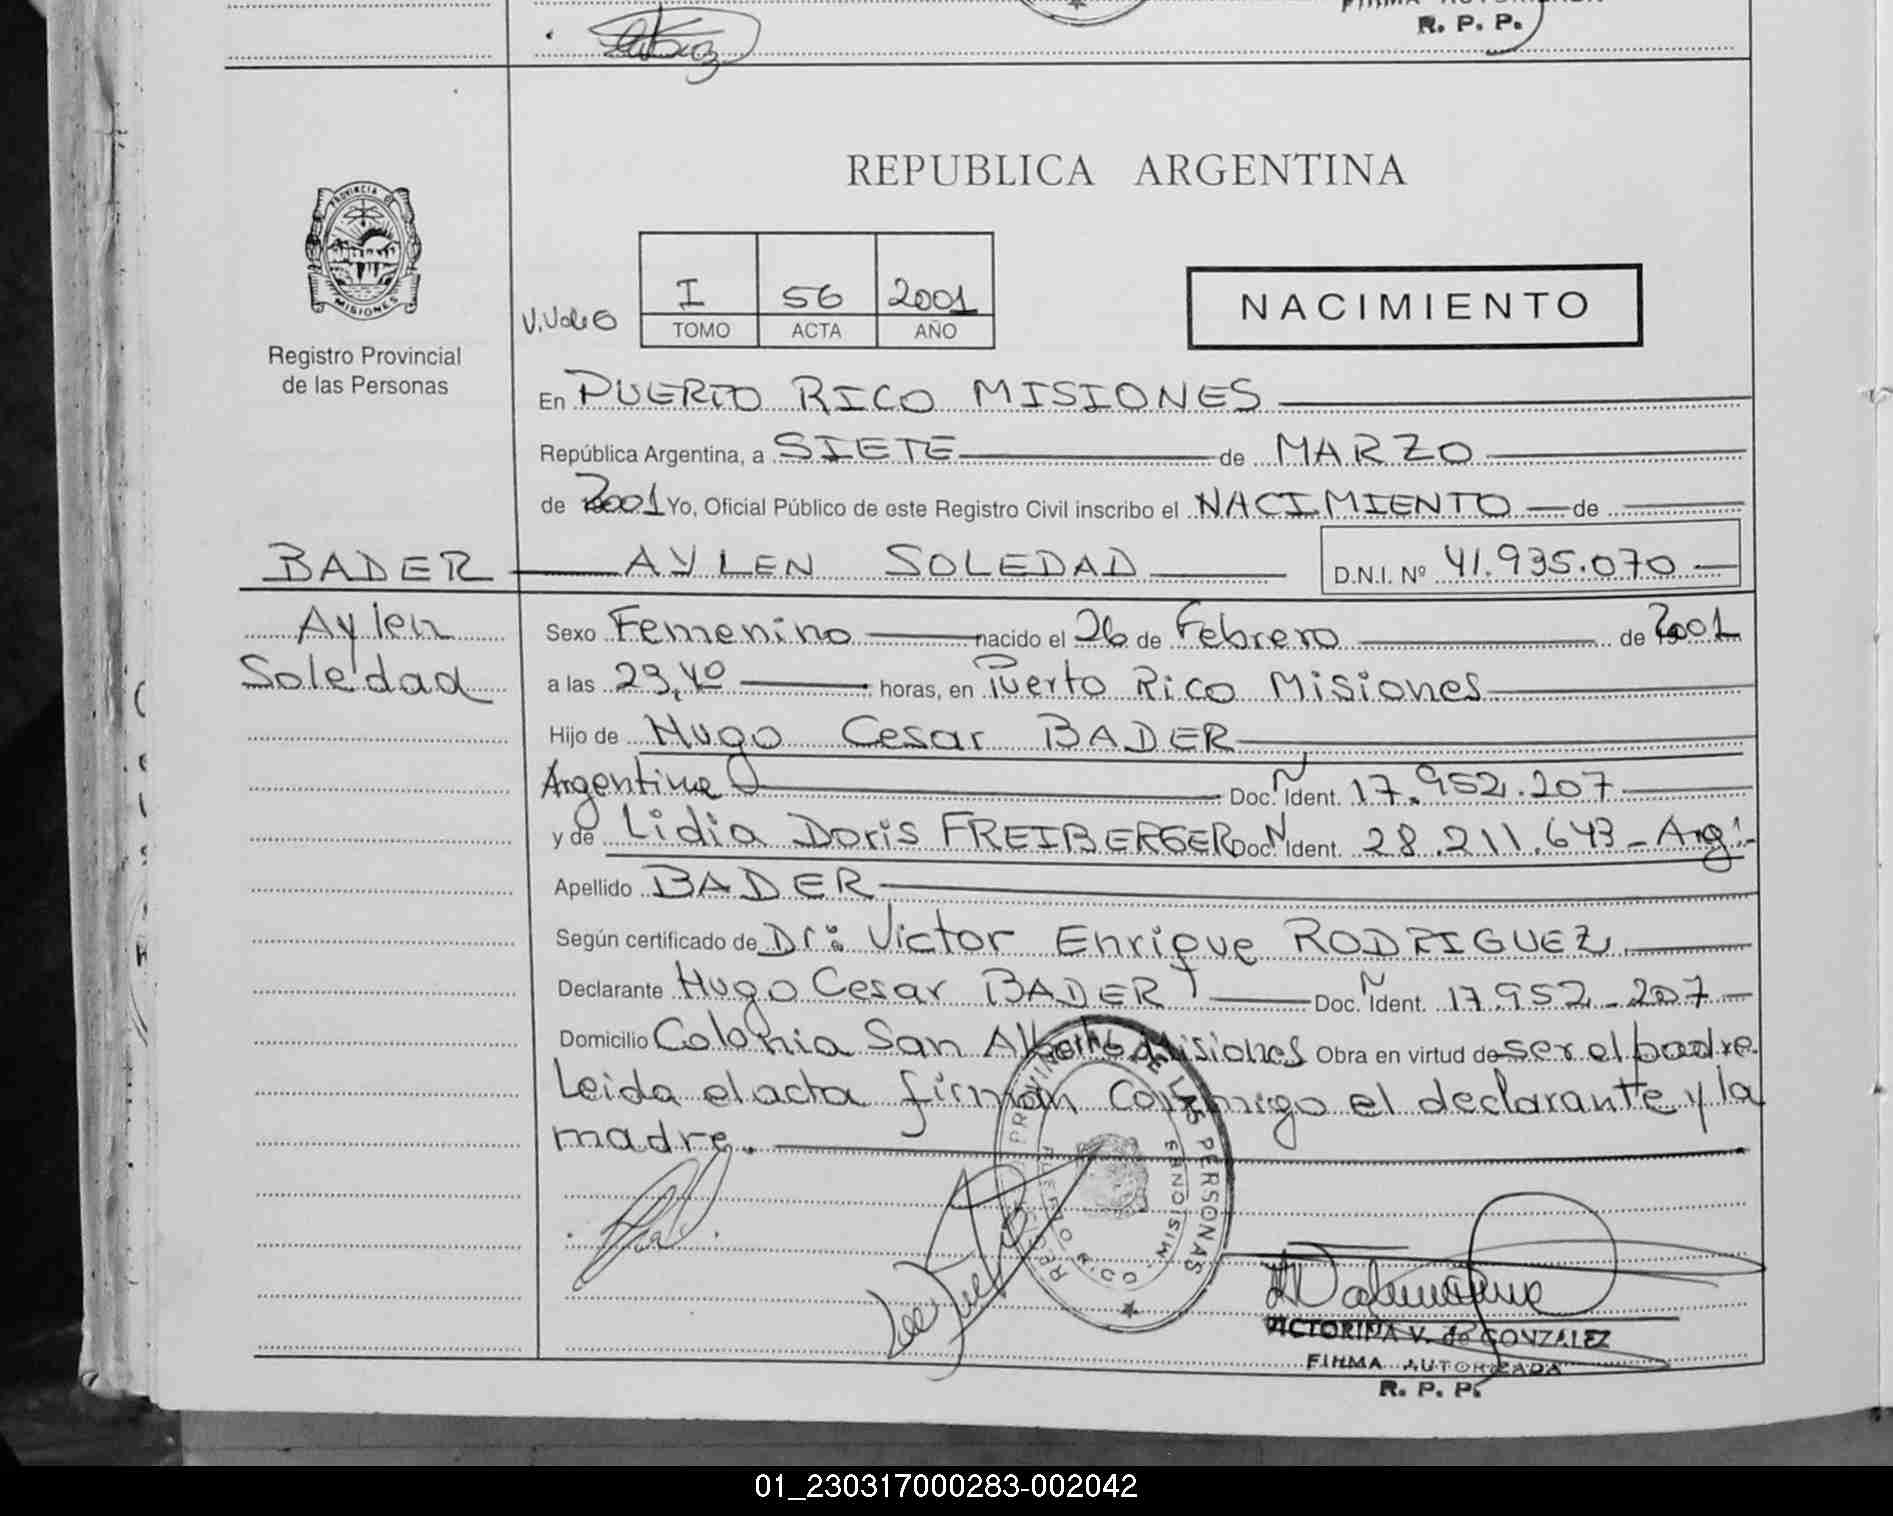 FIRMA AUTORIZADA
R. P. P.
REPUBLICA ARGENTINA
PROVINCIA DE
MISIONES
Registro Provincial
de las Personas
I 56 2001
TOMO ACTA AÑO
NACIMIENTO
En PUERTO RICO MISIONES
República Argentina, a SIETE de MARZO
de 2001 Yo, Oficial Público de este Registro Civil inscribo el NACIMIENTO de
BADER AYLEN SOLEDAD D.N.I. Nº 41.935.070
Aylen
Soledad
Sexo Femenino nacido el 26 de Febrero de 2001
a las 23,40 horas, en Puerto Rico Misiones
Hijo de Hugo Cesar BADER
Argentina Doc. Ident. 17.952.207
y de Lidia Doris FREIBERGER Doc. Ident. 28.211.643 - Arg.
Apellido BADER
Según certificado de Dr: Victor Enrique RODRIGUEZ
Declarante Hugo Cesar BADER Doc. Ident. 17.952.207
Domicilio Colonia San Alberto Misiones Obra en virtud de ser el padre.
Leida el acta firman conmigo el declarante y la
madre.
PROVINCIAL DE LAS PERSONAS
PUERTO RICO - MISIONES
VICTORINA V. de GONZALEZ
FIRMA AUTORIZADA
R. P. P.
01_230317000283-002042